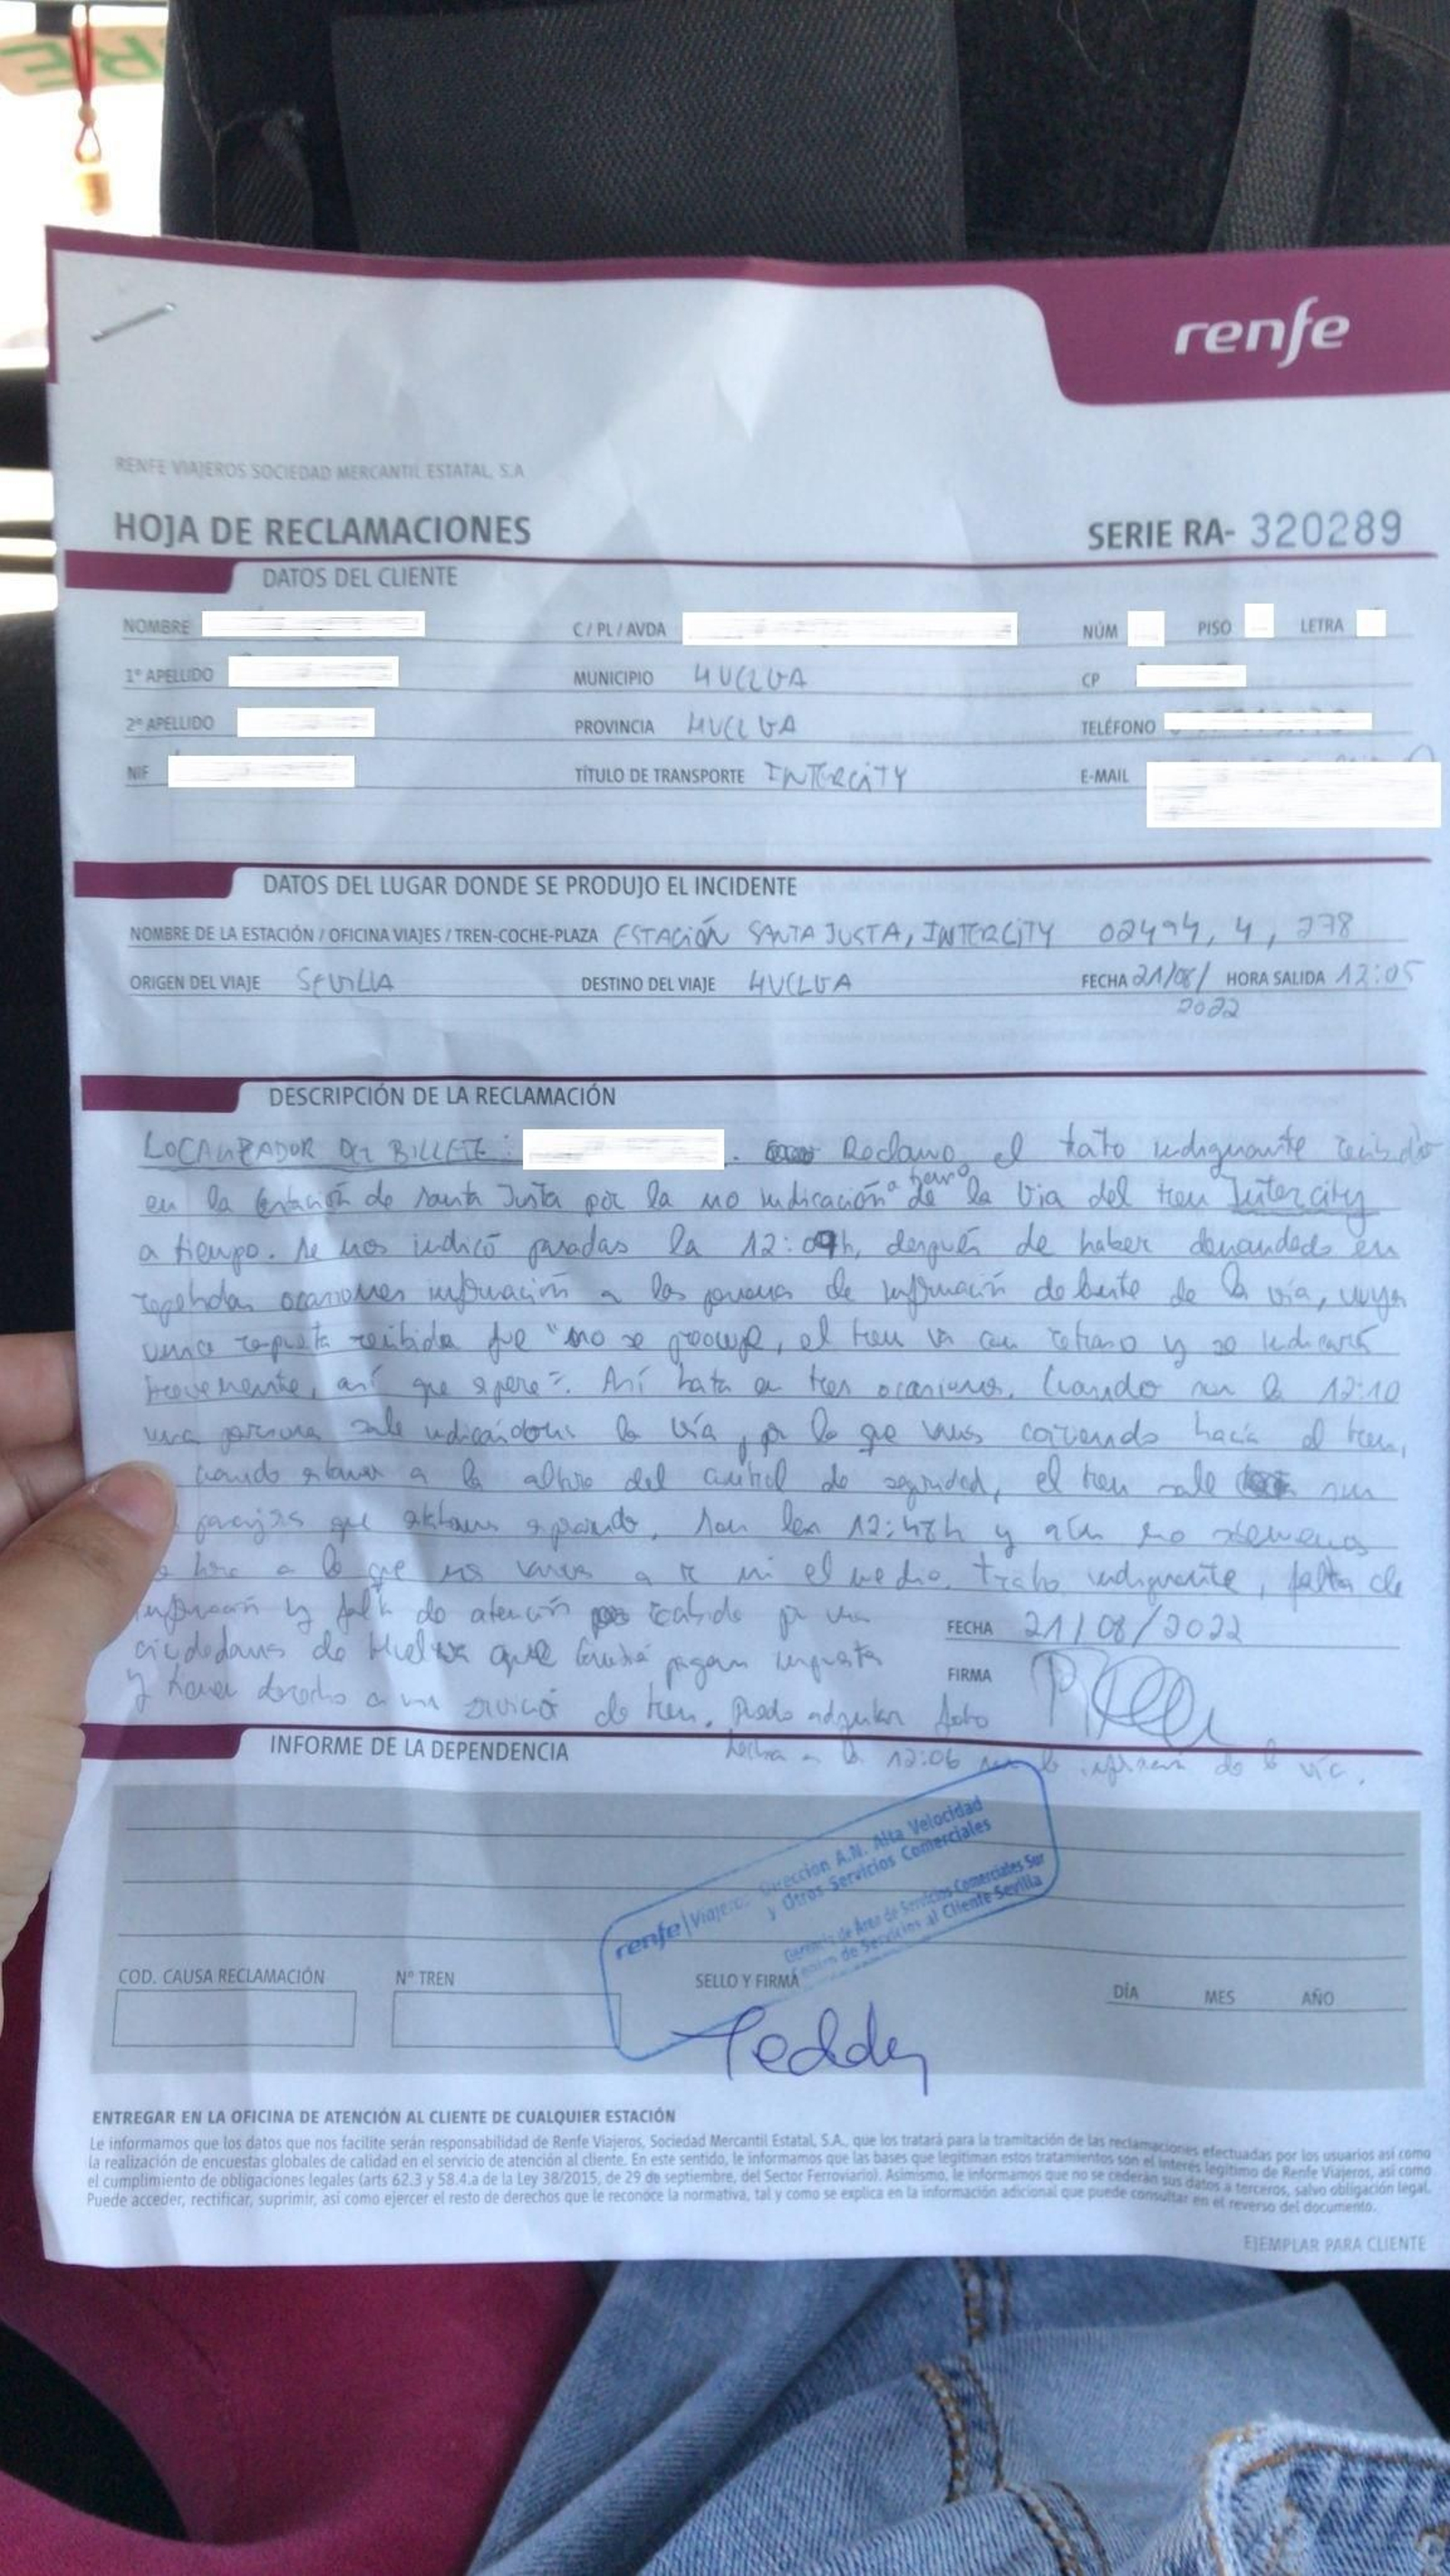 renfe
RENFE VIAJEROS SOCIEDAD MERCANTIL ESTATAL, S.A
HOJA DE RECLAMACIONES SERIE RA- 320289
DATOS DEL CLIENTE
NOMBRE C / PL / AVDA NÚM PISO LETRA
1º APELLIDO MUNICIPIO HUELVA CP
2º APELLIDO PROVINCIA HUELVA TELÉFONO
NIF TÍTULO DE TRANSPORTE INTERCITY E-MAIL
DATOS DEL LUGAR DONDE SE PRODUJO EL INCIDENTE
NOMBRE DE LA ESTACIÓN / OFICINA VIAJES / TREN-COCHE-PLAZA ESTACIÓN SANTA JUSTA, INTERCITY 02494, 4, 278
ORIGEN DEL VIAJE SEVILLA DESTINO DEL VIAJE HUELVA FECHA 21/08/ HORA SALIDA 12:05
2022
DESCRIPCIÓN DE LA RECLAMACIÓN
LOCALIZADOR DEL BILLETE: . Reclamo el trato indignante recibido
en la Estación de Santa Justa por la no indicación de la vía del tren Intercity
a tiempo. Se nos indicó pasadas la 12:09h, después de haber demandado en
repetidas ocasiones información a las personas de información delante de la vía, cuya
única respuesta recibida fue "no se preocupe, el tren va con retraso y se indicará
brevemente, así que espere". Así hasta en tres ocasiones. Cuando son la 12:10
una persona sale indicándonos la vía, por lo que vamos corriendo hacia el tren,
cuando estamos a la altura del control de seguridad, el tren sale sin
pasajeros que estábamos esperando. Son las 12:48h y aún no sabemos
hora a la que nos vamos a ir ni el medio. Trato indignante, falta de
información y falta de atención recibido por una FECHA 21/08/2022
ciudadana de Huelva que también pagan impuestos FIRMA
y tienen derecho a un servicio de tren. Puedo adjuntar foto
hecha a la 12:06 sin la información de la vía.
INFORME DE LA DEPENDENCIA
renfe | Viajeros Dirección A.N. Alta Velocidad
y Otros Servicios Comerciales
Gerencia de Área de Servicios Comerciales Sur
Centro de Servicios al Cliente Sevilla
COD. CAUSA RECLAMACIÓN Nº TREN SELLO Y FIRMA DÍA MES AÑO
Teddy
ENTREGAR EN LA OFICINA DE ATENCIÓN AL CLIENTE DE CUALQUIER ESTACIÓN
Le informamos que los datos que nos facilite serán responsabilidad de Renfe Viajeros, Sociedad Mercantil Estatal, S.A., que los tratará para la tramitación de las reclamaciones efectuadas por los usuarios así como
la realización de encuestas globales de calidad en el servicio de atención al cliente. En este sentido, le informamos que las bases que legitiman estos tratamientos son el interés legítimo de Renfe Viajeros, así como
el cumplimiento de obligaciones legales (arts 62.3 y 58.4.a de la Ley 38/2015, de 29 de septiembre, del Sector Ferroviario). Asimismo, le informamos que no se cederán sus datos a terceros, salvo obligación legal.
Puede acceder, rectificar, suprimir, así como ejercer el resto de derechos que le reconoce la normativa, tal y como se explica en la información adicional que puede consultar en el reverso del documento.
EJEMPLAR PARA CLIENTE